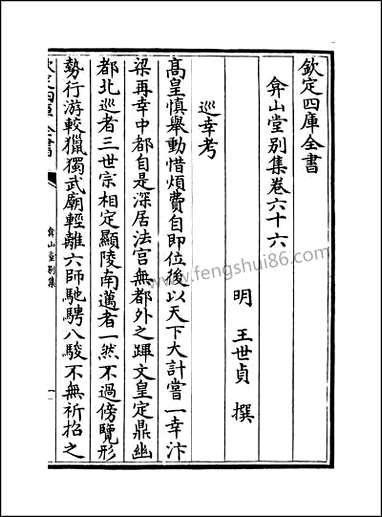 欽定四庫全書
弇山堂别集卷六十六
明 王世貞 撰
巡幸考
髙皇慎舉動惜煩費自即位後以天下大計嘗一幸汴
梁再幸中都自是深居法官無都外之蹕文皇定鼎幽
都北巡者三世宗相定顯陵南邁者一然不過傍覽形
勢行游較獵獨武廟輕離六師馳騁八駿不無祈招之
欽定四庫全書
弇山堂别集
一
www.fengshui86.com